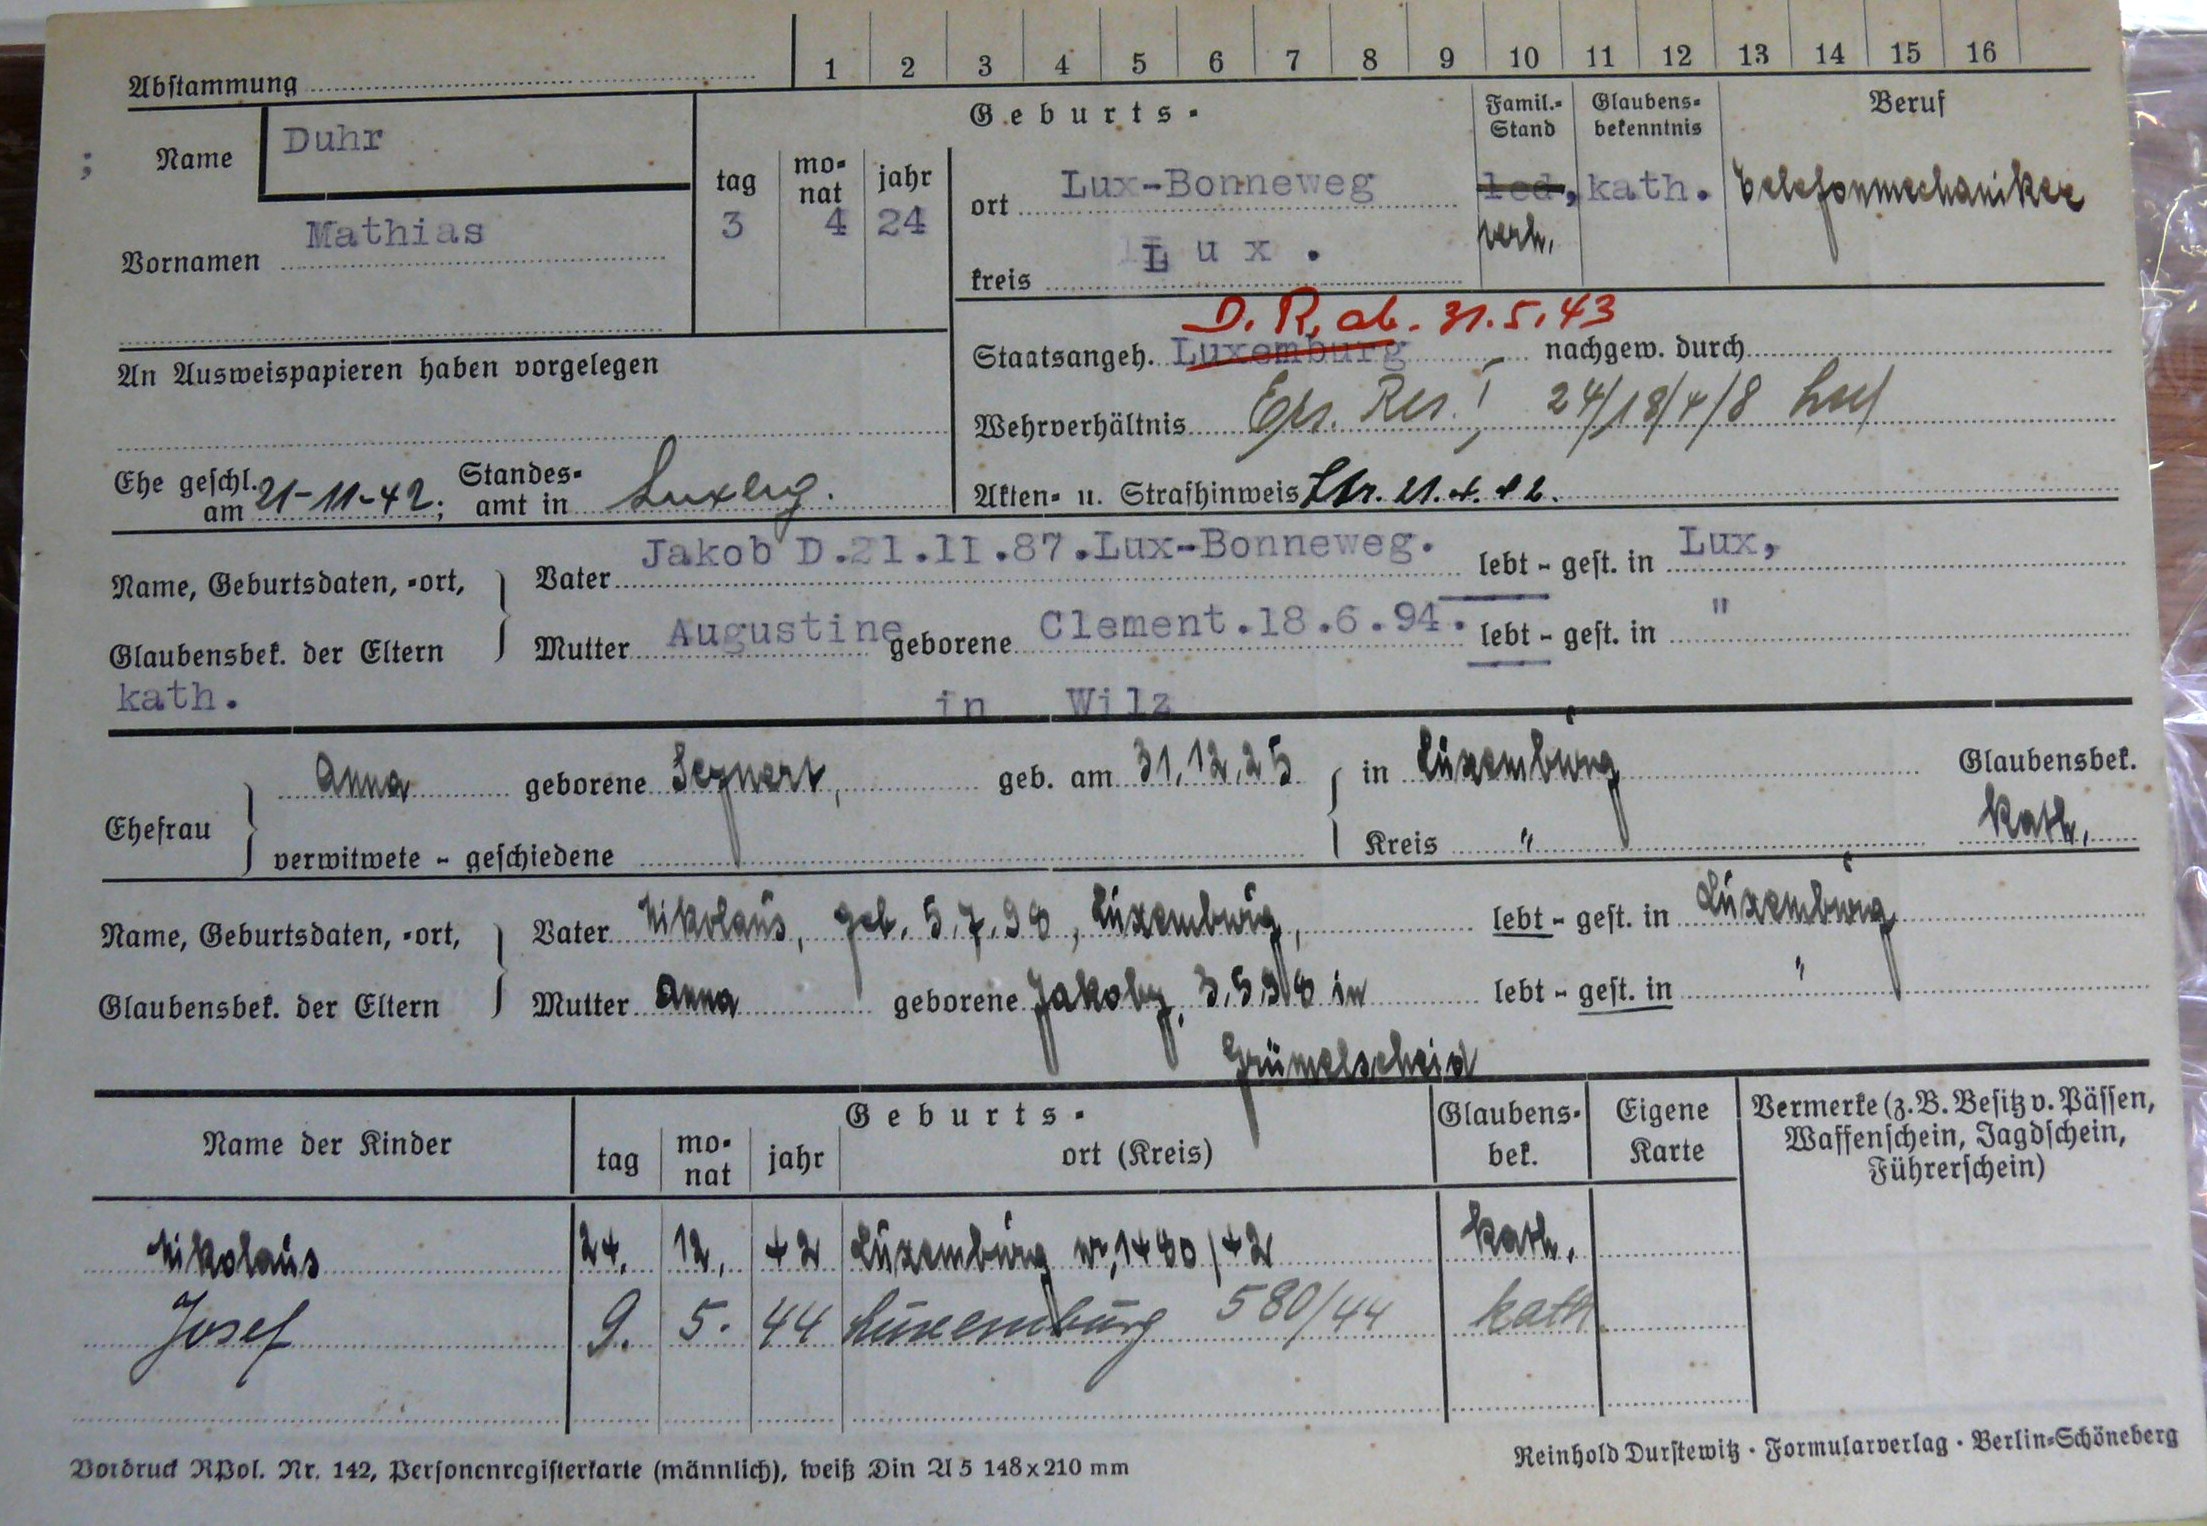 Abstammung 1 2 3 4 5 6 7 8 9 10 11 12 13 14 15 16
Name Duhr
Vornamen Mathias
Geburts-
tag monat jahr
3 4 24
ort Lux-Bonneweg
kreis Lux.
Famil.-Stand
led,
verh.
Glaubens-bekenntnis
kath.
Beruf
Telefonmechaniker
An Ausweispapieren haben vorgelegen
D. R. ab. 31.5.43
Staatsangeh. Luxemburg nachgew. durch
Wehrverhältnis Ers. Res. I 24/18/4/8
Ehe geschl. am 21-11-42; Standesamt in Luxbg.
Akten- u. Strafhinweis
Name, Geburtsdaten, -ort, Vater Jakob D.21.11.87.Lux-Bonneweg. lebt - gest. in Lux,
Glaubensbek. der Eltern Mutter Augustine geborene Clement.18.6.94. lebt - gest. in "
kath. in Wilz
Ehefrau Anna geborene geb. am 31.12.25 in Luxemburg Glaubensbek.
verwitwete - geschiedene Kreis " kath.
Name, Geburtsdaten, -ort, Vater Nikolaus, geb. 5.7.98, Luxemburg, lebt - gest. in Luxemburg
Glaubensbek. der Eltern Mutter Anna geborene Jakoby, 3.5.98 in lebt - gest. in "
Grümelscheid
Name der Kinder
Geburts-
tag monat jahr ort (Kreis)
Glaubens-bek.
Eigene Karte
Vermerke (z. B. Besitz v. Pässen,
Waffenschein, Jagdschein,
Führerschein)
Nikolaus 24. 12. 42 Luxemburg nr. 1480/42 kath.
Josef 9. 5. 44 Luxemburg 580/44 kath
Vordruck RPol. Nr. 142, Personenregisterkarte (männlich), weiß Din A 5 148x210 mm
Reinhold Durstewitz · Formularverlag · Berlin-Schöneberg